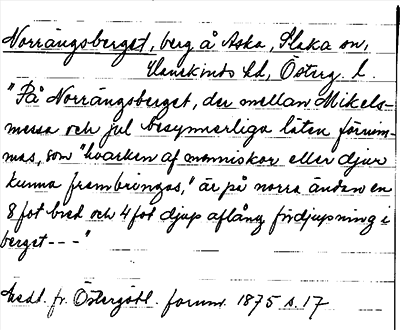 Norrängsberget, berg å Aska, Slaka sn,
Hanekinds hd, Österg. l.
"På Norrängsberget, der mellan Mikels-
messa och jul besynnerliga läten förnim-
mas, som "hvarken af menniskor eller djur
kunna frambringas," är på norra ändan en
8 fot bred och 4 fot djup aflång fördjupning i
berget---"
Medl. fr. Östergötl. fornm. 1875 s. 17